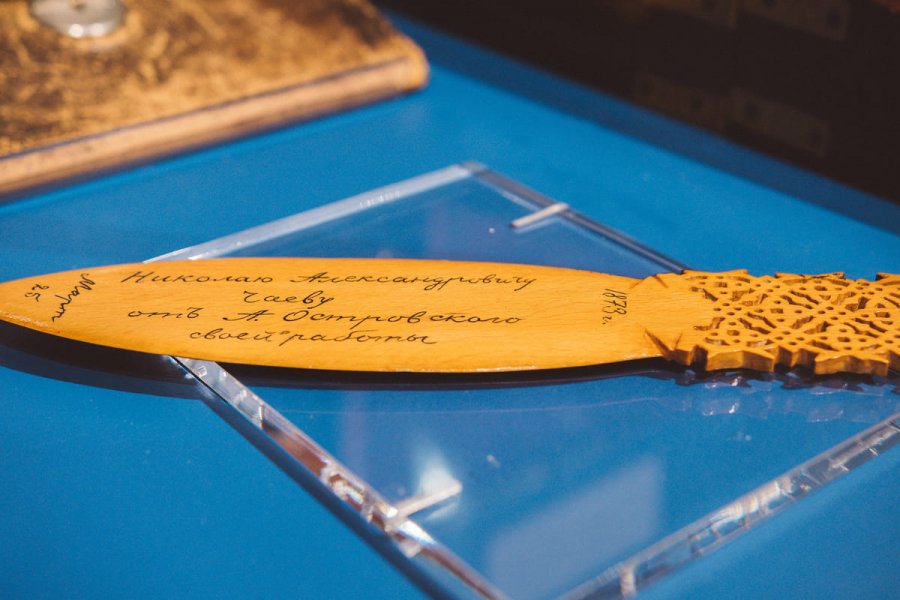 Март
25
Николаю Александровичу
Чаеву
отъ А Островского
своей работы
1873 г.